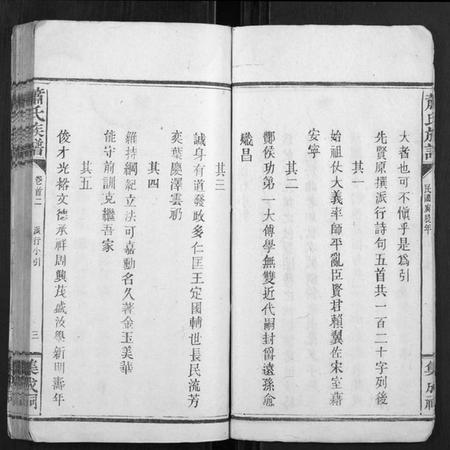 蕭氏族譜
民國庚辰年
集成祠
大者也可不愼乎是爲引
先賢原撰派行詩句五首共一百二十字列後
其一
始祖仗大義率師平亂臣賢君賴翼佐宋室藉
安寧
其二
鄭侯功第一大傳學無雙近代嗣封爵遠孫愈
熾昌
其三
誠身有道發政多仁匡王定國輔世長民流芳
奕葉慶澤雲礽
其四
維持綱紀立法可嘉勳名久著金玉美華
能守前訓克繼吾家
其五
俊才光裕文德承祥周興茂盛汝學新明壽年
蕭氏族譜
卷首二
派行小引
三
集成祠